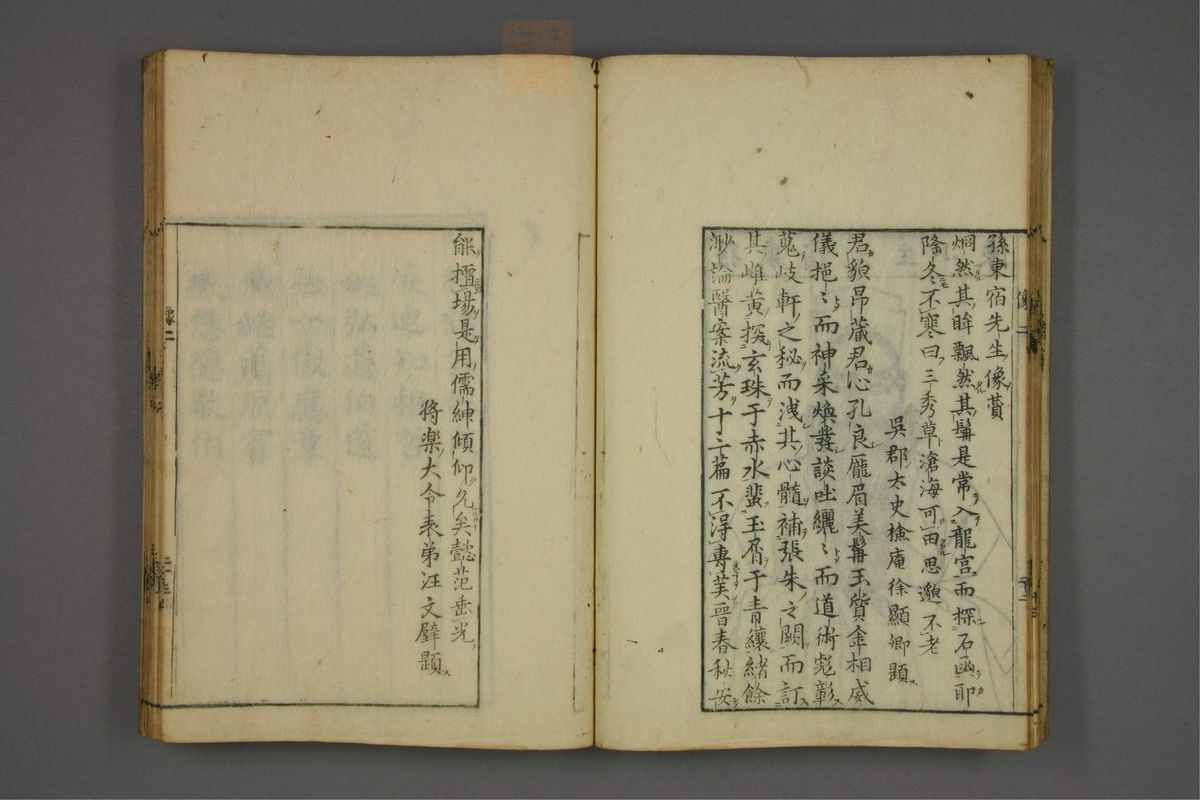 孫東宿先生像賛
烱然其眸飄然其鬚是常入龍宮而探石函耶
隆冬不寒曰三秀草滄海可田思邈不老
吳郡太史檢庵徐顯卿題
君貌昂藏君心孔良厖眉美鬚玉質金相威
儀挹〻而神采煥發談吐纚〻而道術彪彰
蒐岐軒之秘而洩其心髓補張朱之闕而訂
其雌黃探玄珠于赤水蜚玉屑于青纕緒餘
渺論醫案流芳十三篇不得專美晉春秋安
能擅場是用儒紳傾仰久矣懿范垂光
将楽大令表弟汪文璧題
像二
像二